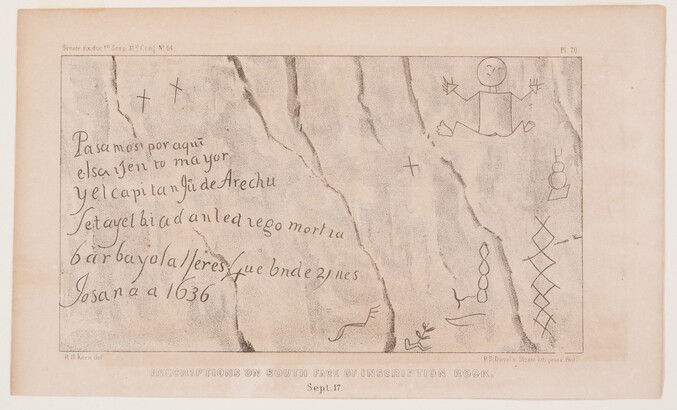 Senate Ex. doc. 1st Sess. 31st Cong. No. 64.
Pl. 70
Pasamos por aquí
elsarJento mayor
yel capitan Jũ de Arechu
letayelbiadanledregomortin
barbayalalferes
Josanaa 1636
R.H. Kern del.
P.S. Duval's Steam lit. press Phil.
INSCRIPTIONS ON SOUTH FACE OF INSCRIPTION ROCK.
Sept. 17.